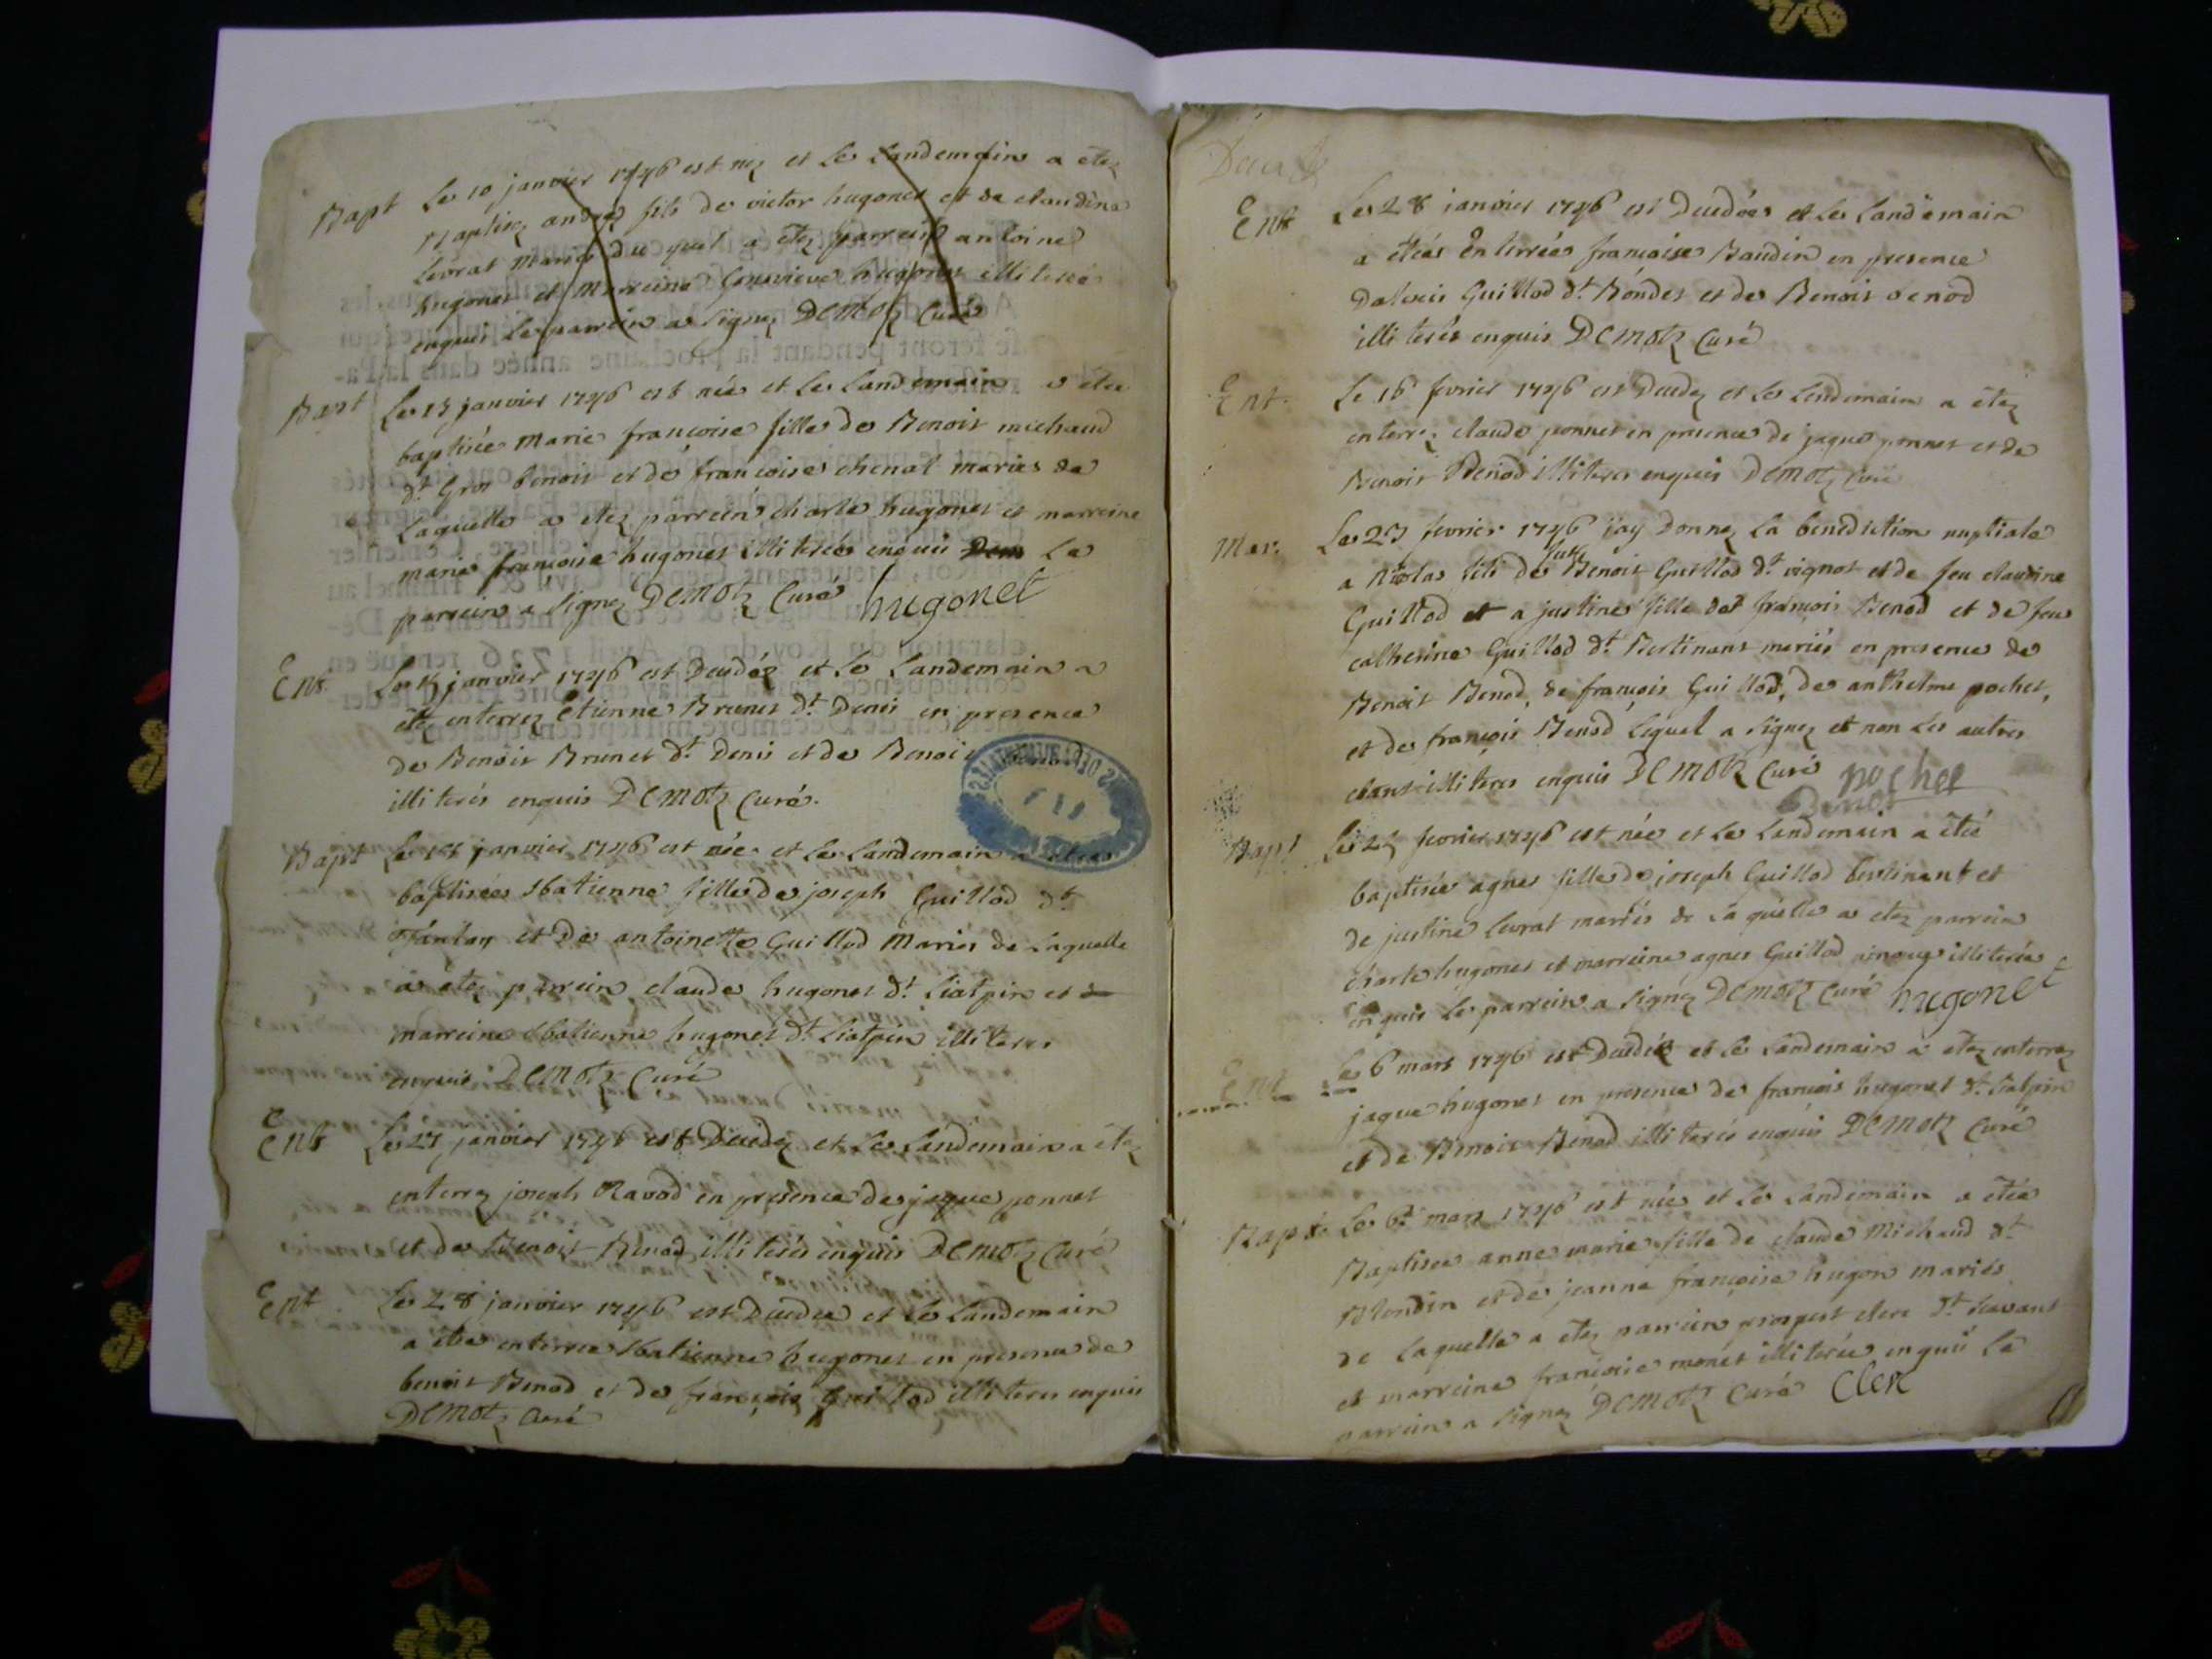 Bapt Le 10 janvier 1746 est nez et le Landemain a étez
Baptisez andrez fils de victor hugonet et de claudine
Levrat mariés du quel a étez parrein antoine
hugonet et marreine Genevieve hugonet illiterée
enquis le parrein a signez DEMOTZ Curé
Bapt Le 13 janvier 1746 est née et le Landemain a étée
baptisée marie françoise fille de Benoit michaud
dt Gros benoit et de françoise chenal mariés de
Laquelle a étez parrein charle hugonet et marreine
marie françoise hugonet illiterée enquis Le
parrein a signez DEMOTZ Curé hugonet
Ent Le 15 janvier 1746 est Decedéz et Le Landemain a
étéz enterrez étienne Brunet dt Denis en presence
de Benoit Brunet dt Denis et de Benoit
illiterés enquis DEMOTZ Curé.
Bapt Le janvier 1746 est née et Le Landemain a étée
baptisée sbatienne fille de joseph Guillod dt
et De antoinette Guillod Mariés de Laquelle
a étez parrein claude hugonet dt Liatpin et
marreine sbatienne hugonet dt Liatpin illiterés
enquis DEMOTZ Curé
Ent Le 27 janvier 1746 est Decedez et Le Landemain a étez
enterrez joseph Ravod en presence de jaque ponnet
et de Benoit Benod illiterés enquis DEMOTZ Curé
Ent Le 28 janvier 1746 est Decedée et Le Landemain
a étée enterrée sbatienne hugonet en presence de
benoit Benod et de françois Guillod illiterés enquis
DEMOTZ Curé
Ent Le 28 janvier 1746 est Decedée et Le Landemain
a étéés Enterrée françoise Baudin en presence
Guillod dt Bondet et de Benoit benod
illiterés enquis DEMOTZ Curé
Ent. Le 16 fevrier 1746 est Decedez et Le Lendemain a étez
enterrez claude ponnet en presence de jaque ponnet et de
Benoit Benod illiterés enquis DEMOTZ Curé
Mar. Le 27 fevrier 1746 jay Donnez La benediction nuptiale
a Nicolas fils de Benoit Guillod dt vignot et de feu claudine
Guillod et a justine fille de françois Benod et de feu
catherine Guillod dt Bertinant mariés en presence de
Benoit Benod, de françois Guillod, de anthelme pochet,
et de françois Benod Lequel a signez et non Les autres
etant illiteres enquis DEMOTZ Curé pochet
Benod
Bapt Le 27 fevrier 1746 est née et Le Landemain a étéé
baptisée agnes fille de joseph Guillod bertinant et
de justine Levrat mariés de Laquelle a étez parrein
charle hugonet et marreine agnes Guillod illiterée
enquis Le parrein a signéz DEMOTZ Curé hugonet
Ent Le 6 mars 1746 est Decedéz et Le Landemain a étez enterrez
jaque hugonet en presence de françois hugonet dt Liatpin
et de Benoit Benod illiterés enquis DEMOTZ Curé
Bapt Le 6 mars 1746 est née et Le Landemain a étéé
Baptisée anne marie fille de claude Michaud dt
Blondin et de jeanne françoise hugon mariés
de Laquelle a étez parrein prospert clerc dt
et marreine françoise monet illiterée enquis Le
parrein a signez DEMOTZ Curé Clerc